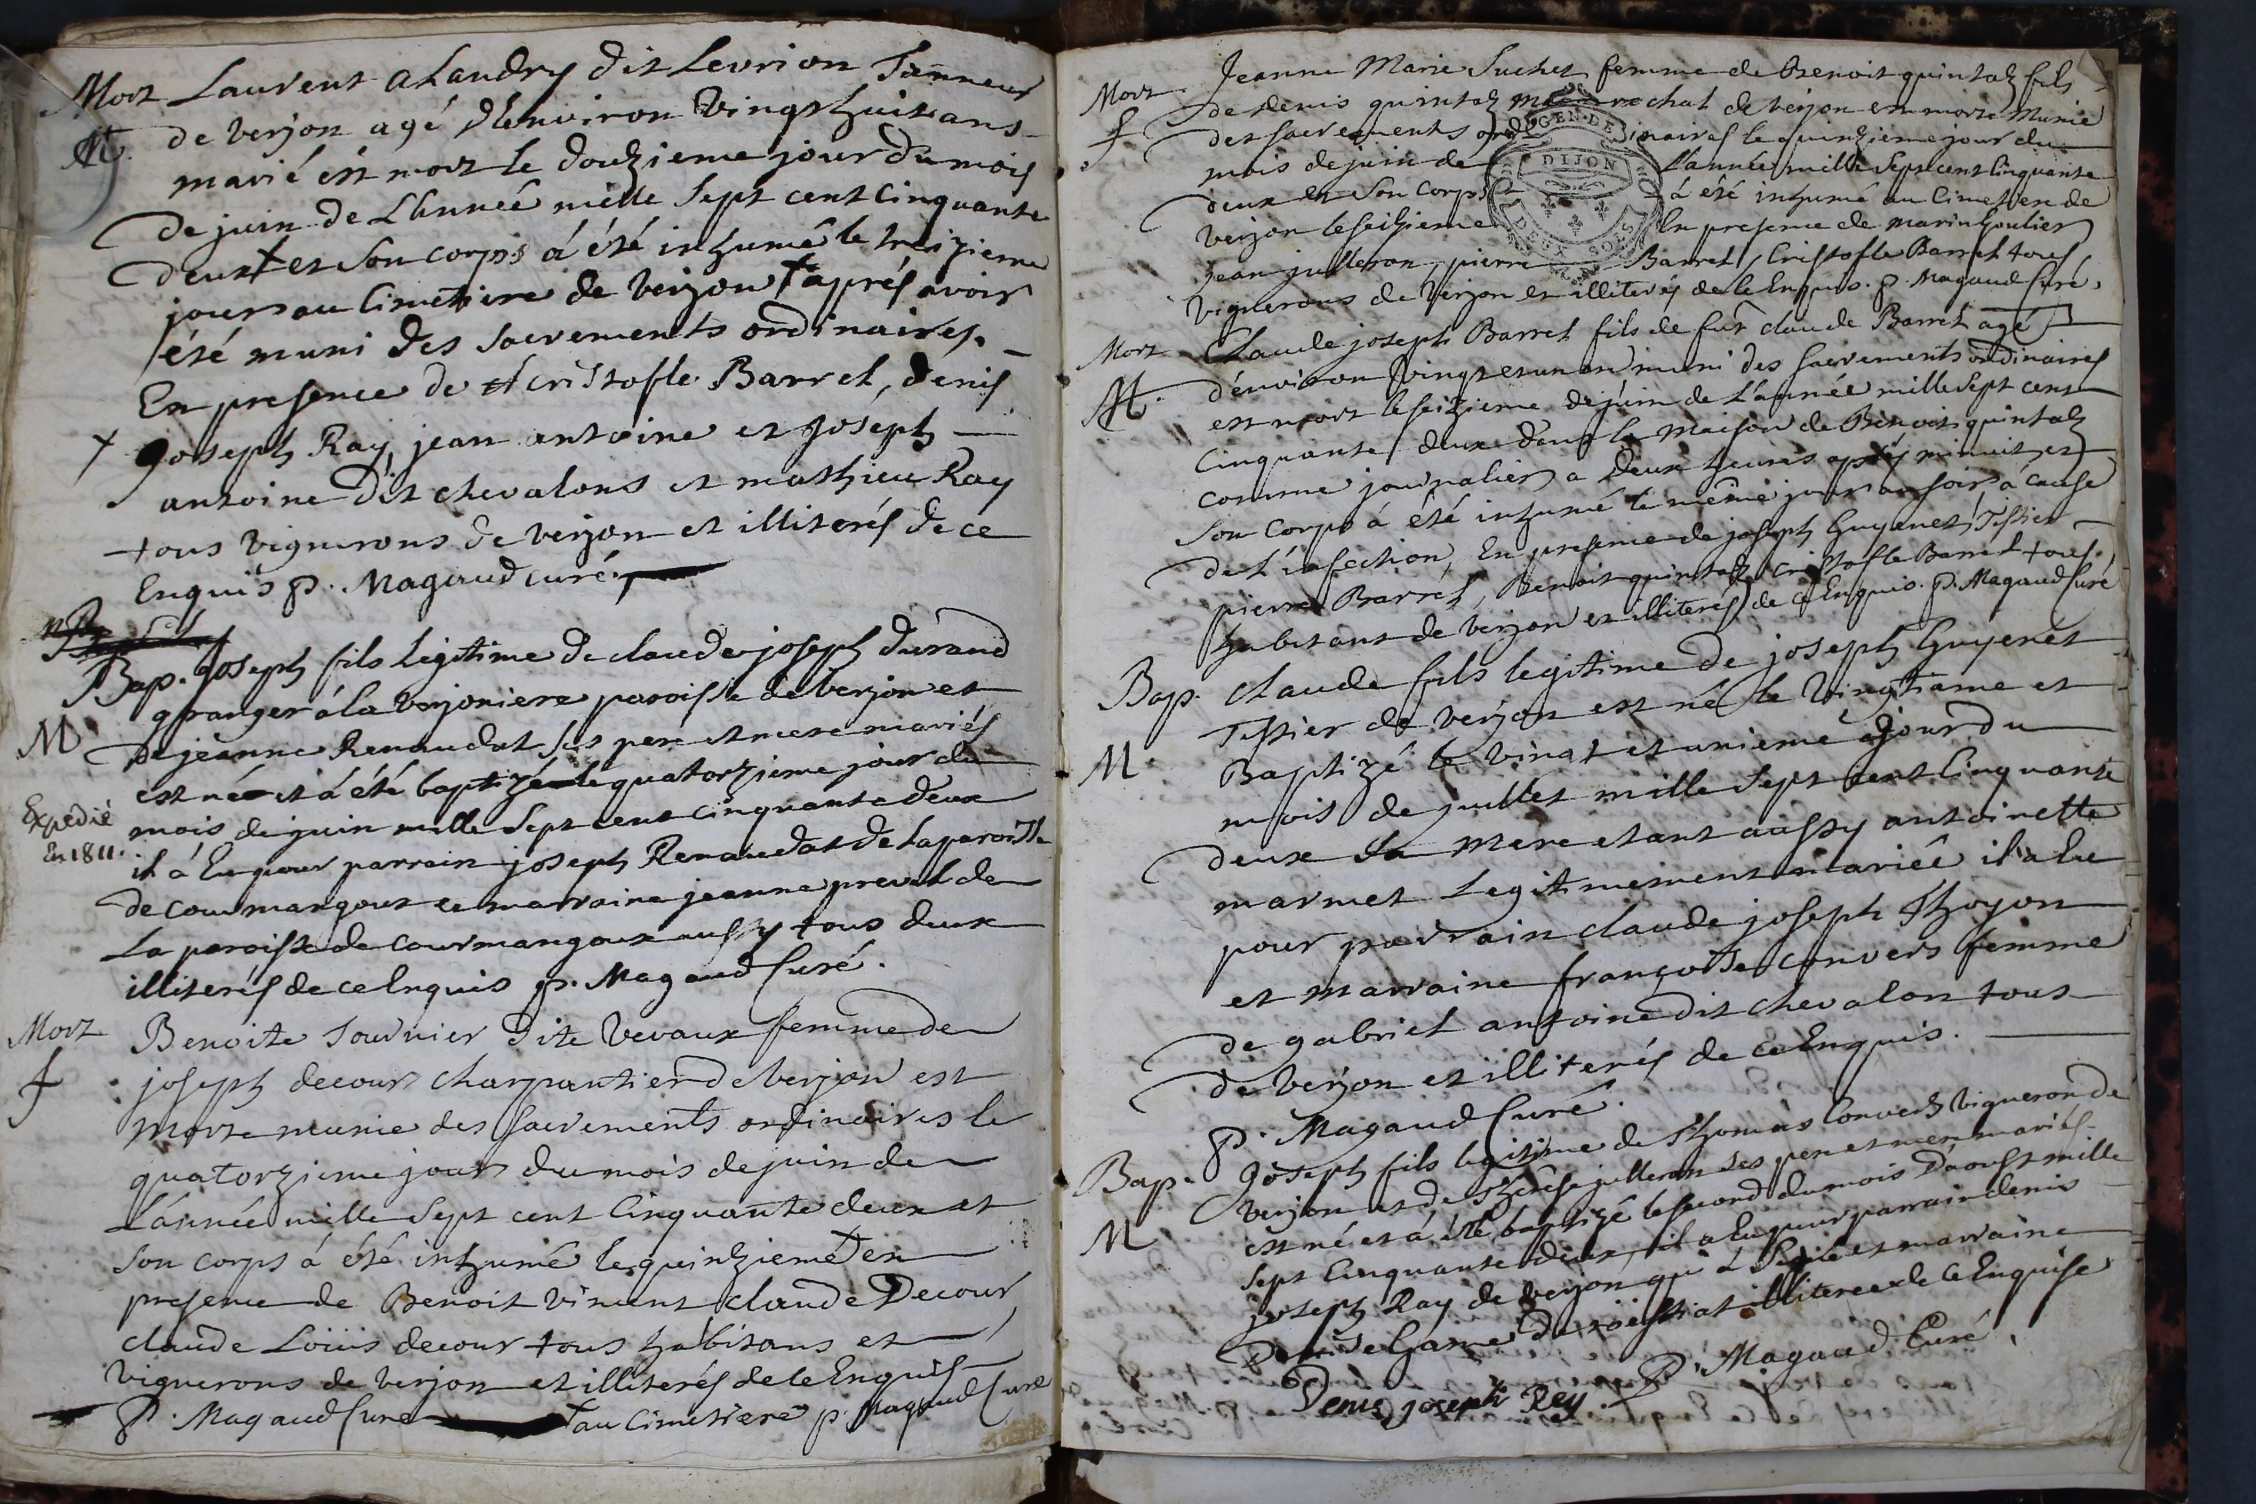 Mort Laurent alandry dit Levrion Tanneur
M. de verjon agé d'environ vingt huit ans
marié est mort le douzieme jour du mois
de juin de L'année mille Sept cent Cinquante
deux + et Son corps á été inhumé le treizieme
jour au Cimetiere de verjon + aprés avoir
été muni des sacrements ordinaires.
En presence de cristofle Barret, denis
+ joseph Ray, jean antoine et joseph
antoine dit chevalons et mathieu Ray
tous vignerons de verjon et illiterés de ce
Enquis p. Magaud curé
Bap. joseph fils legitime de claude joseph durand
granger á la verjoniere paroisse de verjon et
M de jeanne Renaudat ses pere et mere mariés
est né et á été baptizé le quatorzieme jour du
Expedié mois de juin mille Sept cent cinquante deux
En 1811. il á Eu pour parrain joseph Renaudat de la paroisse
de courmangoux et marraine jeanne prevel de
La paroisse de courmangoux aussy tous deux
illiterés de ce Enquis p. Magaud Curé.
Mort Benoite Tournier dite Vevaux femme de
f joseph decour charpantier de verjon est
morte munie des sacrements ordinaires le
quatorzieme jour du mois de juin de
L'année mille Sept cent Cinquante deux et
son corps á été inhumé le quinzieme + en
presence de Benoit vincent claude Decour
claude Loüis decour tous habitans et
vignerons de verjon et illiterés de ce Enquis
p. Magaud Curé + au Cimetiere p. Magaud Curé
Jeanne Marie Suchet femme de Benoit quintal fils
Mort de denis quintal marechal de verjon est morte munie
f des sacrements ordinaires le quinzieme jour du
GEN. DE DIJON
DEUX SOLS
mois de juin de L'année mille Sept cent Cinquante
deux et Son corps á été inhumé au Cimetiere de
verjon le seizieme En presence de marin houlier
jean julleron, pierre Barret, Cristofle Barret tous
vignerons de verjon et illiterés de ce Enquis. p. Magaud Curé.
Mort Claude joseph Barret fils de fut claude Barret agé
M. d'environ vingt et un an muni des sacrements ordinaires
est mort le seizieme de juin de L'année mille Sept cent
Cinquante deux dans la maison de Benoit quintal
comme journalier a deux heures aprés minuit et
Son Corps á été inhumé le même jour au soir á cause
de L'infection, En presence de joseph Guyenet Tissier
pierre Barret, Benoit quintal cristofle Barret tous
habitant de verjon et illiterés de ce Enquis. p. Magaud Curé
Bap. Claude fils legitime de joseph Guyenet
Tissier de verjon est né le vingtiame et
M Baptizé le vingt et unieme jour du
mois de juillet mille Sept cent Cinquante
deux Sa mere etant aussy antoinette
marmet Legitimement mariée il a Eu
pour parrain claude joseph Thoyon
et marraine françoise convers femme
de gabriel antoine dit chevalon tous
de verjon et illiterés de ce Enquis.
p. Magaud Curé.
Bap. joseph fils legitime de Thomas Convers vigneron de
verjon et de Therese julleron ses pere et mere mariés
M est né et á été baptizé le second du mois d'aoust mille
Sept Cinquante deux, il a Eu pour parrain denis
joseph Ray de verjon qui á Signé et marraine
illiteree de ce Enquise
Denis joseph Rey. p. Magaud Curé.